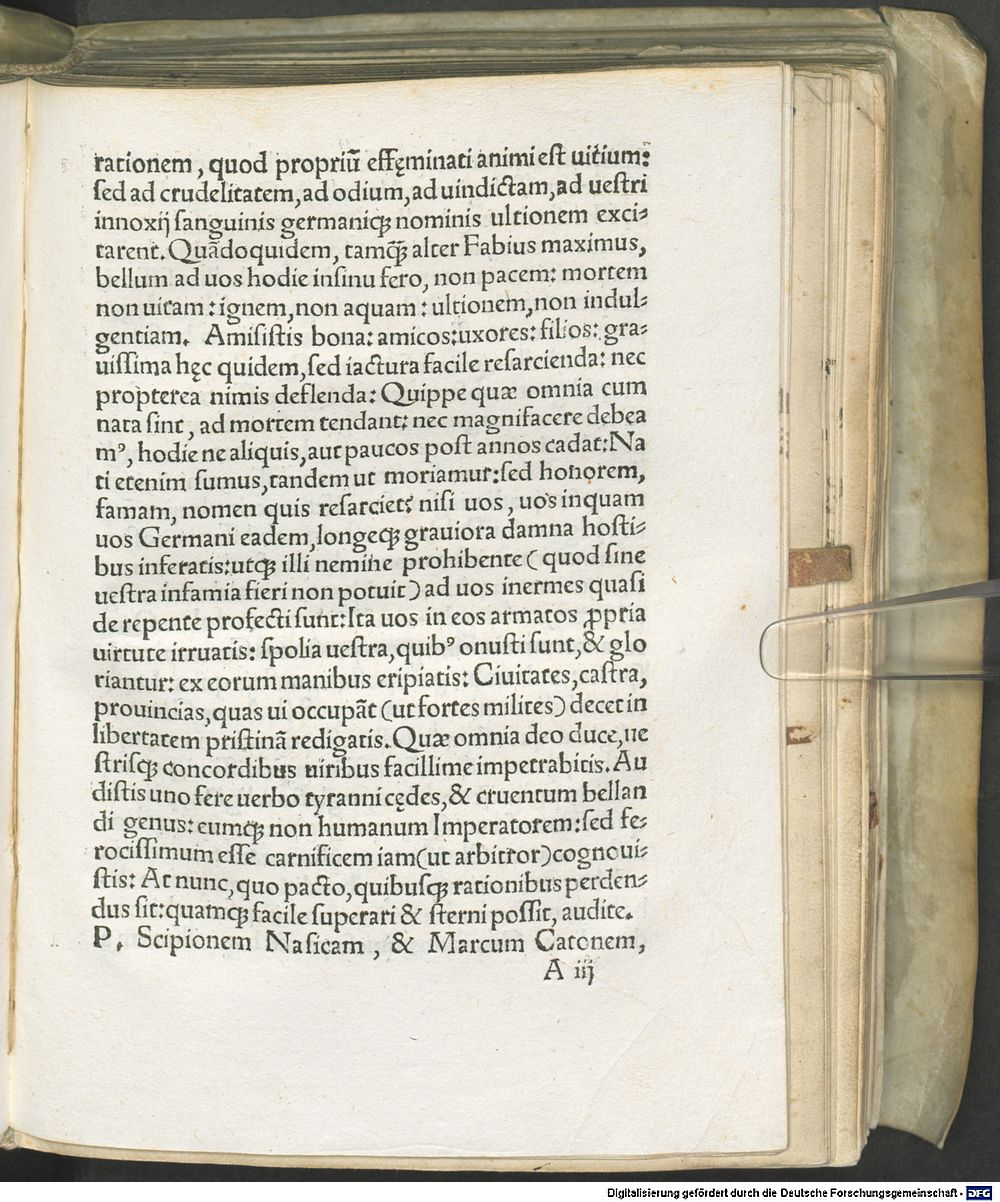 rationem, quod propriū effęminati animi est uitium:
sed ad crudelitatem, ad odium, ad uindictam, ad uestri
innoxij sanguinis germaniqꝫ nominis ultionem exci⸗
tarent. Quādoquidem, tamq̄ꝫ alter Fabius maximus,
bellum ad uos hodie insinu fero, non pacem: mortem
non uitam: ignem, non aquam: ultionem, non indul⸗
gentiam. Amisistis bona: amicos: uxores: filios: gra⸗
uissima hęc quidem, sed iactura facile resarcienda: nec
propterea nimis deflenda: Quippe quæ omnia cum
nata sint, ad mortem tendant: nec magnifacere debea
mꝰ, hodie ne aliquis, aut paucos post annos cadat: Na
ti etenim sumus, tandem ut moriamur: sed honorem,
famam, nomen quis resarciet? nisi uos, uos inquam
uos Germani eadem, longeqꝫ grauiora damna hosti⸗
bus inferatis: utqꝫ illi nemine prohibente (quod sine
uestra infamia fieri non potuit) ad uos inermes quasi
de repente profecti sunt: Ita uos in eos armatos ꝓpria
uirtute irruatis: spolia uestra, quibꝰ onusti sunt, & glo
riantur: ex eorum manibus eripiatis: Ciuitates, castra,
prouincias, quas ui occupāt (ut fortes milites) decet in
libertatem pristinā redigatis. Quæ omnia deo duce, ue
strisqꝫ concordibus uiribus facillime impetrabitis. Au
distis uno fere uerbo tyranni cędes, & cruentum bellan
di genus: eumqꝫ non humanum Imperatorem: sed fe⸗
rocissimum esse carnificem iam (ut arbitror) cognoui⸗
stis: At nunc, quo pacto, quibusqꝫ rationibus perden⸗
dus sit: quamqꝫ facile superari & sterni possit, audite.
P. Scipionem Nasicam, & Marcum Catonem,
A iij
Digitalisierung gefördert durch die Deutsche Forschungsgemeinschaft - DFG